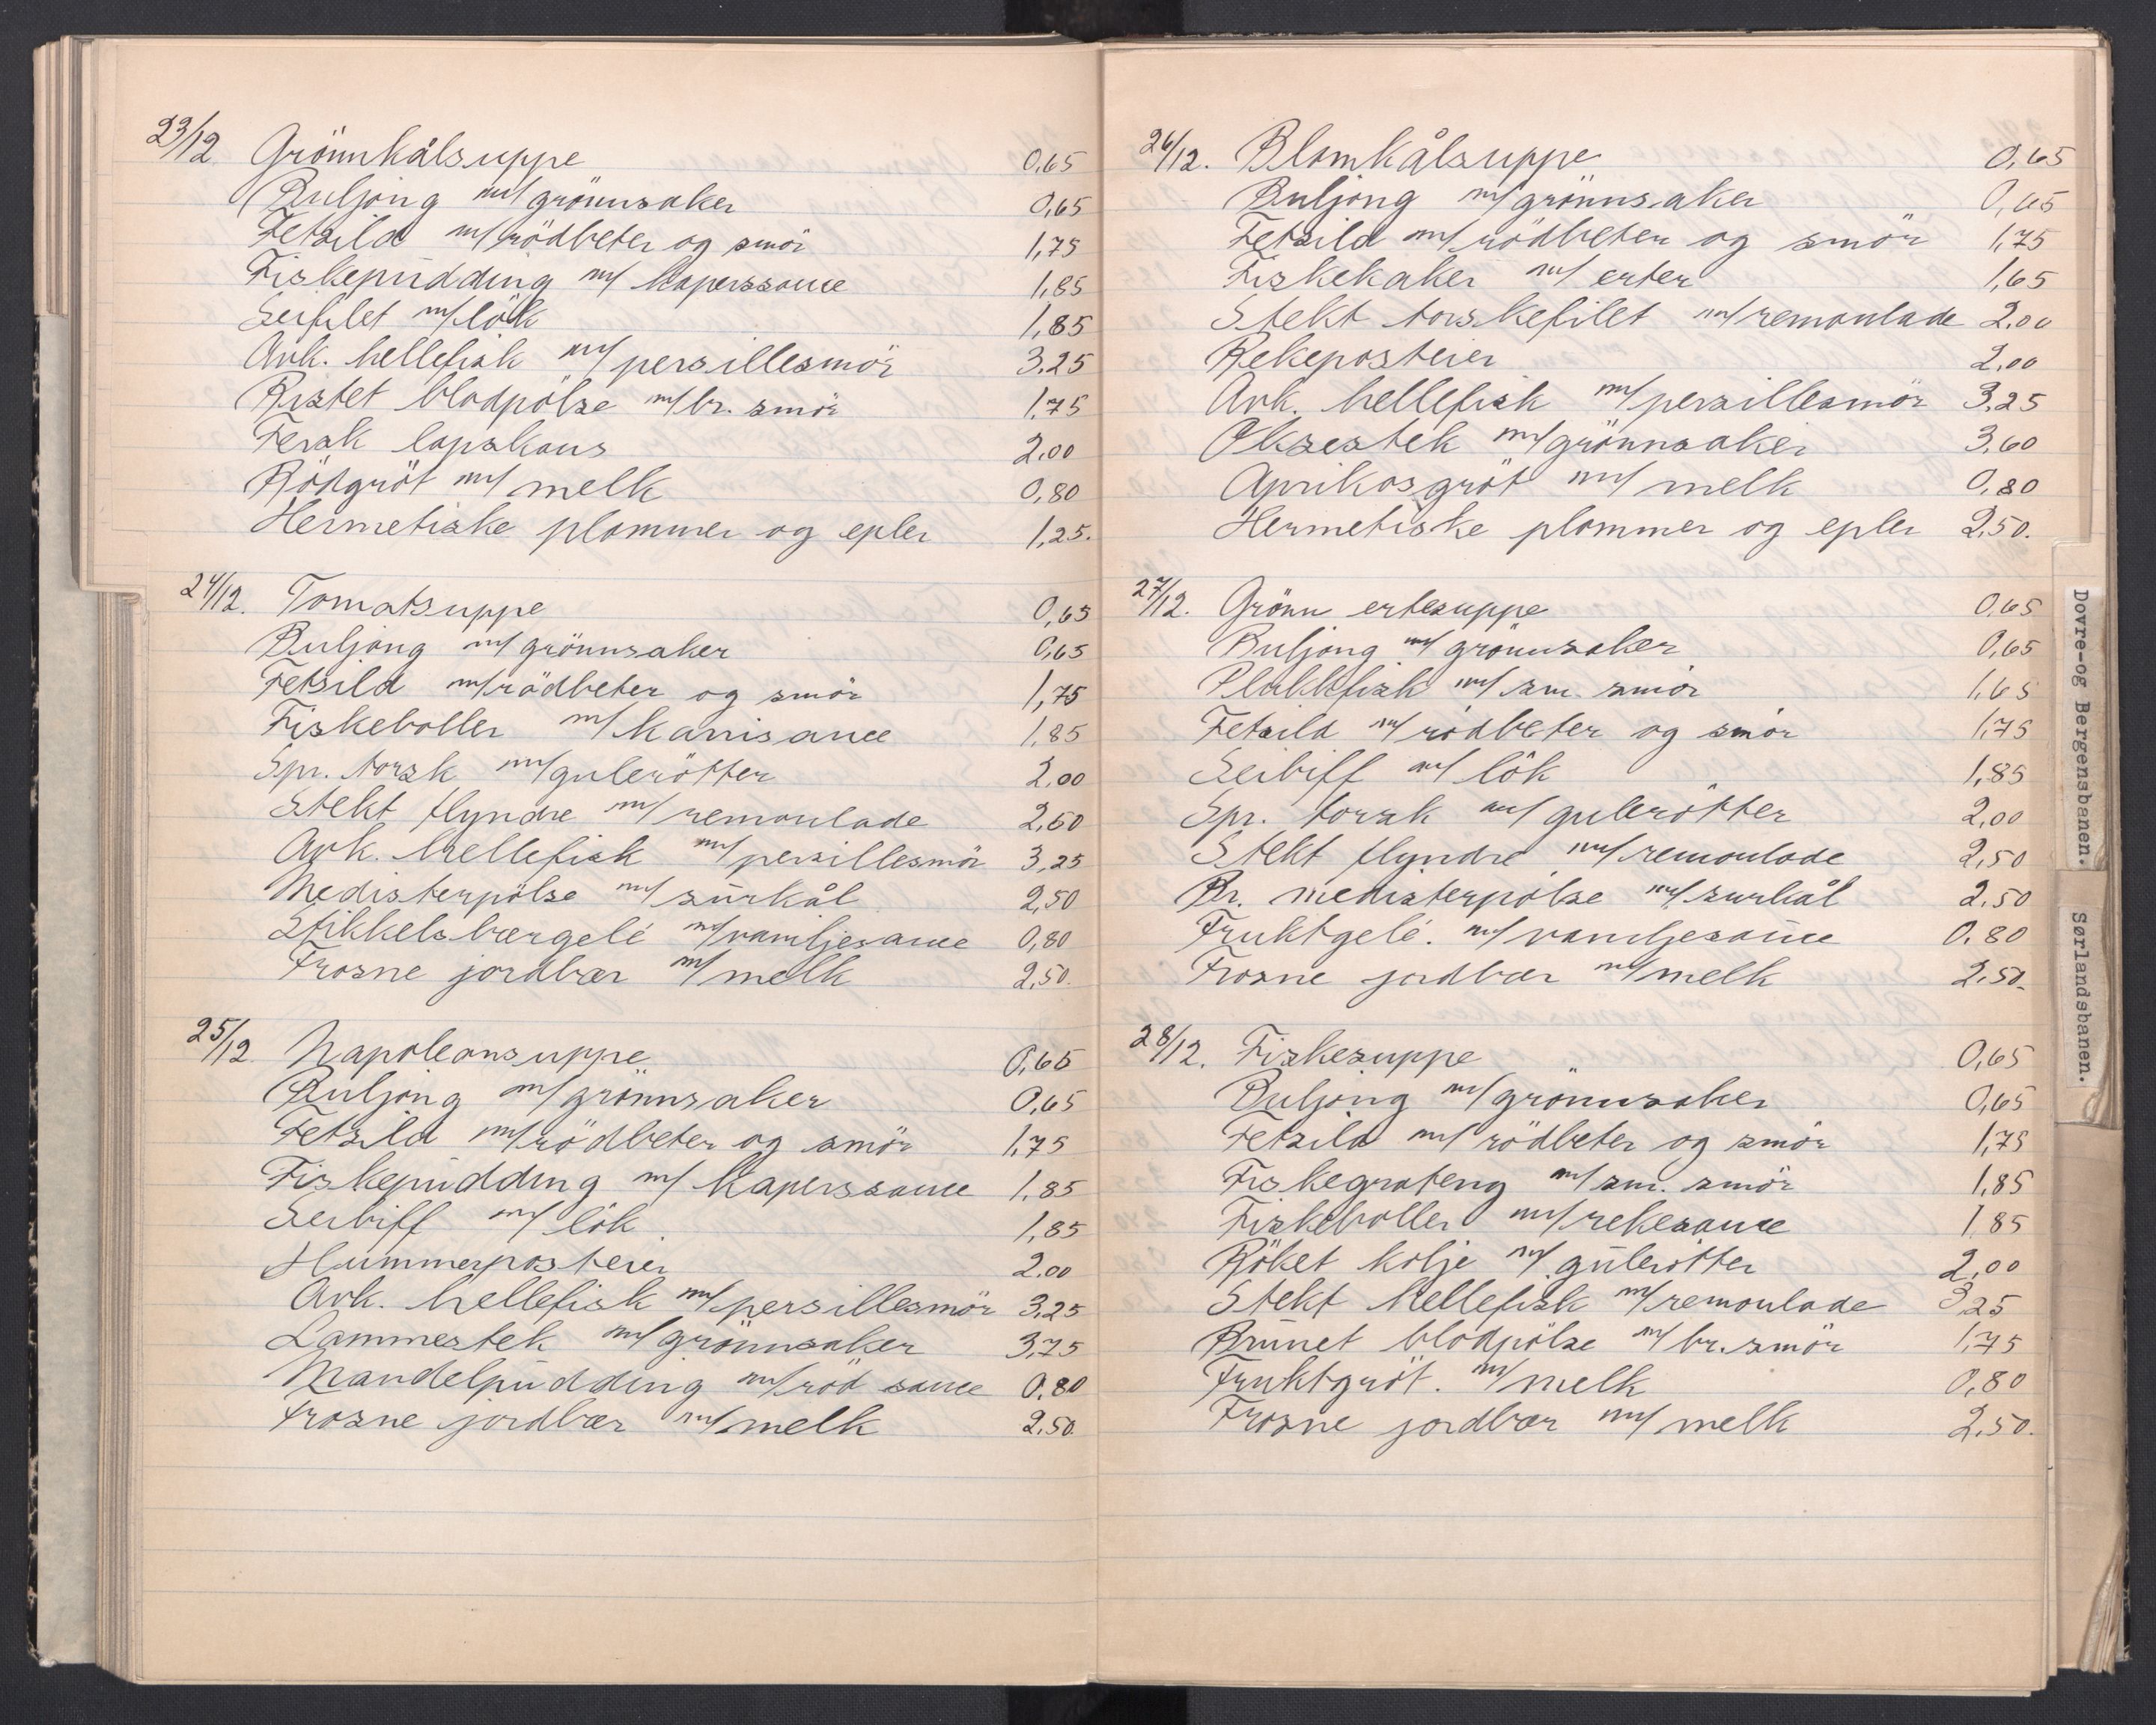 23/12 Grönnkålsuppe 0,65
Buljong m/grönnsaker 0,65
Fetsild m/rödbeter og smör 1,75
Fiskepudding m/ Kaperssauce 1,85
Seifilet m/lök 1,85
Avk. hellefisk m/persillesmör 3,25
Ristet blodpölse m/br. smör 1,75
Fersk lapskaus 2,00
Rödgröt m/ melk 0,80
Hermetiske plommer og epler 1,25.
24/12. Tomatsuppe 0,65
Buljong m/grönnsaker 0,65
Fetsild m/rödbeter og smör 1,75
Fiskeboller m/karrisauce 1,85
Spr. torsk m/gulerötter 2,00
Stekt flyndre m/remoulade 2,50
Avk. hellefisk m/persillesmör 3,25
Medisterpölse m/surkål 2,50
Stikkelsbærgelé m/vaniljesauce 0,80
Frosne jordbær m/melk 2,50.
25/12 Napoleonsuppe 0,65
Buljong m/grönnsaker 0,65
Fetsild m/rödbeter og smör 1,75
Fiskepudding m/ Kaperssauce 1,85
Seibiff m/ lök 1,85
Hummerposteier 2,00
Avk. hellefisk m/persillesmör 3,25
Lammestek m/grönnsaker 3,75
Mandelpudding m/röd sauce 0,80
Frosne jordbær m/melk 2,50.
26/12. Blomkålsuppe 0,65
Buljong m/grönnsaker 0,65
Fetsild m/rödbeter og smör 1,75
Fiskekaker m/ erter 1,65
Stekt torskefilet m/remoulade 2,00
Rekeposteier 2,00
Avk. hellefisk m/persillesmör 3,25
Oksestek m/grönnsaker 3,60
Aprikosgröt m/ melk 0,80
Hermetiske plommer og epler 2,50.
27/12. Grönn ertesuppe 0,65
Buljong m/grönnsaker 0,65
Plukkfisk m/sm. smör 1,65
Fetsild m/rödbeter og smör 1,75
Seibiff m/ lök 1,85
Spr. torsk m/gulerötter 2,00
Stekt flyndre m/remoulade 2,50
Br. medisterpölse m/surkål 2,50
Fruktgelé. m/vaniljesauce 0,80
Frosne jordbær m/melk 2,50.
28/12. Fiskesuppe 0,65
Buljong m/grönnsaker 0,65
Fetsild m/rödbeter og smör 1,75
Fiskegrateng m/sm. smör 1,85
Fiskeboller m/rekesauce 1,85
Röket kolje m/gulerötter 2,00
Stekt hellefisk m/remoulade 3,25
Brunet blodpölse m/br. smör 1,75
Fruktgröt. m/melk 0,80
Frosne jordbær m/ melk 2,50.
Dovre-og Bergensbanen.
Sørlandsbanen.